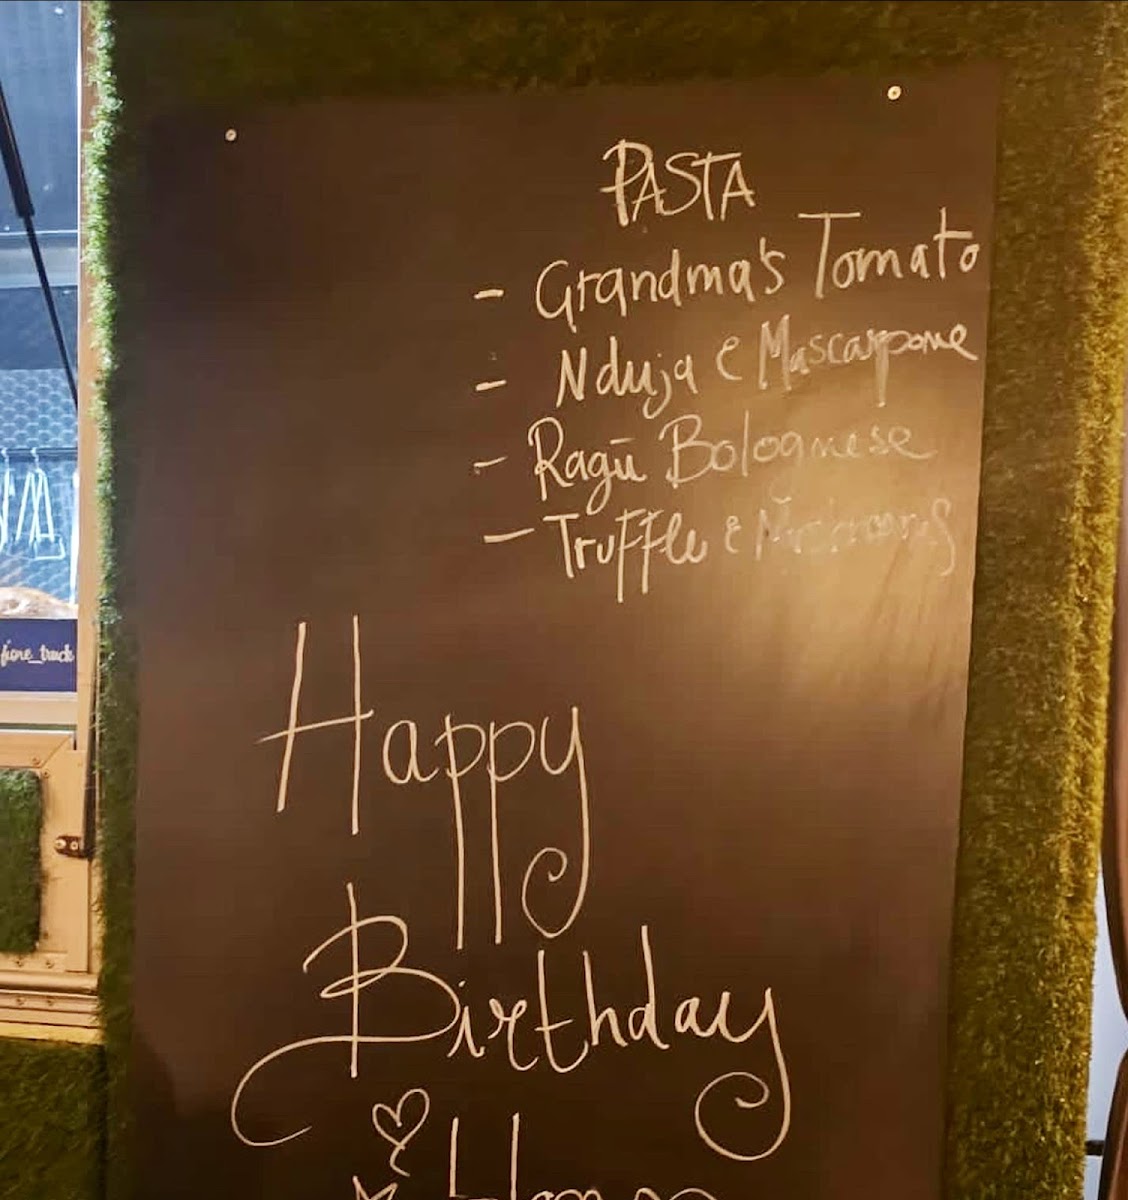 PASTA
- Grandma's Tomato
- Nduja e Mascarpone
- Ragū Bolognese
- Truffle e Mushrooms
fiore_truck
Happy
Birthday